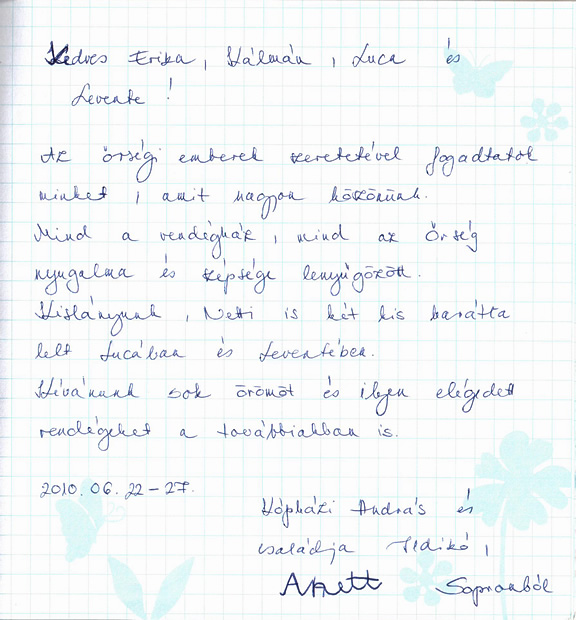 Kedves Erika, Kálmán, Luca és
Levente!
Az őrségi emberek szeretetével fogadtatok
minket, amit nagyon köszönünk.
Mind a vendégház, mind az Őrség
nyugalma és szépsége lenyűgözött.
Kislányunk, Netti is két kis barátta
lelt Lucában és Leventében.
Kívánunk sok örömöt és ilyen elégedett
vendégeket a továbbiakban is.
2010. 06. 22 - 27.
Kópházi András és
családja Ildikó,
Anett Sopronból